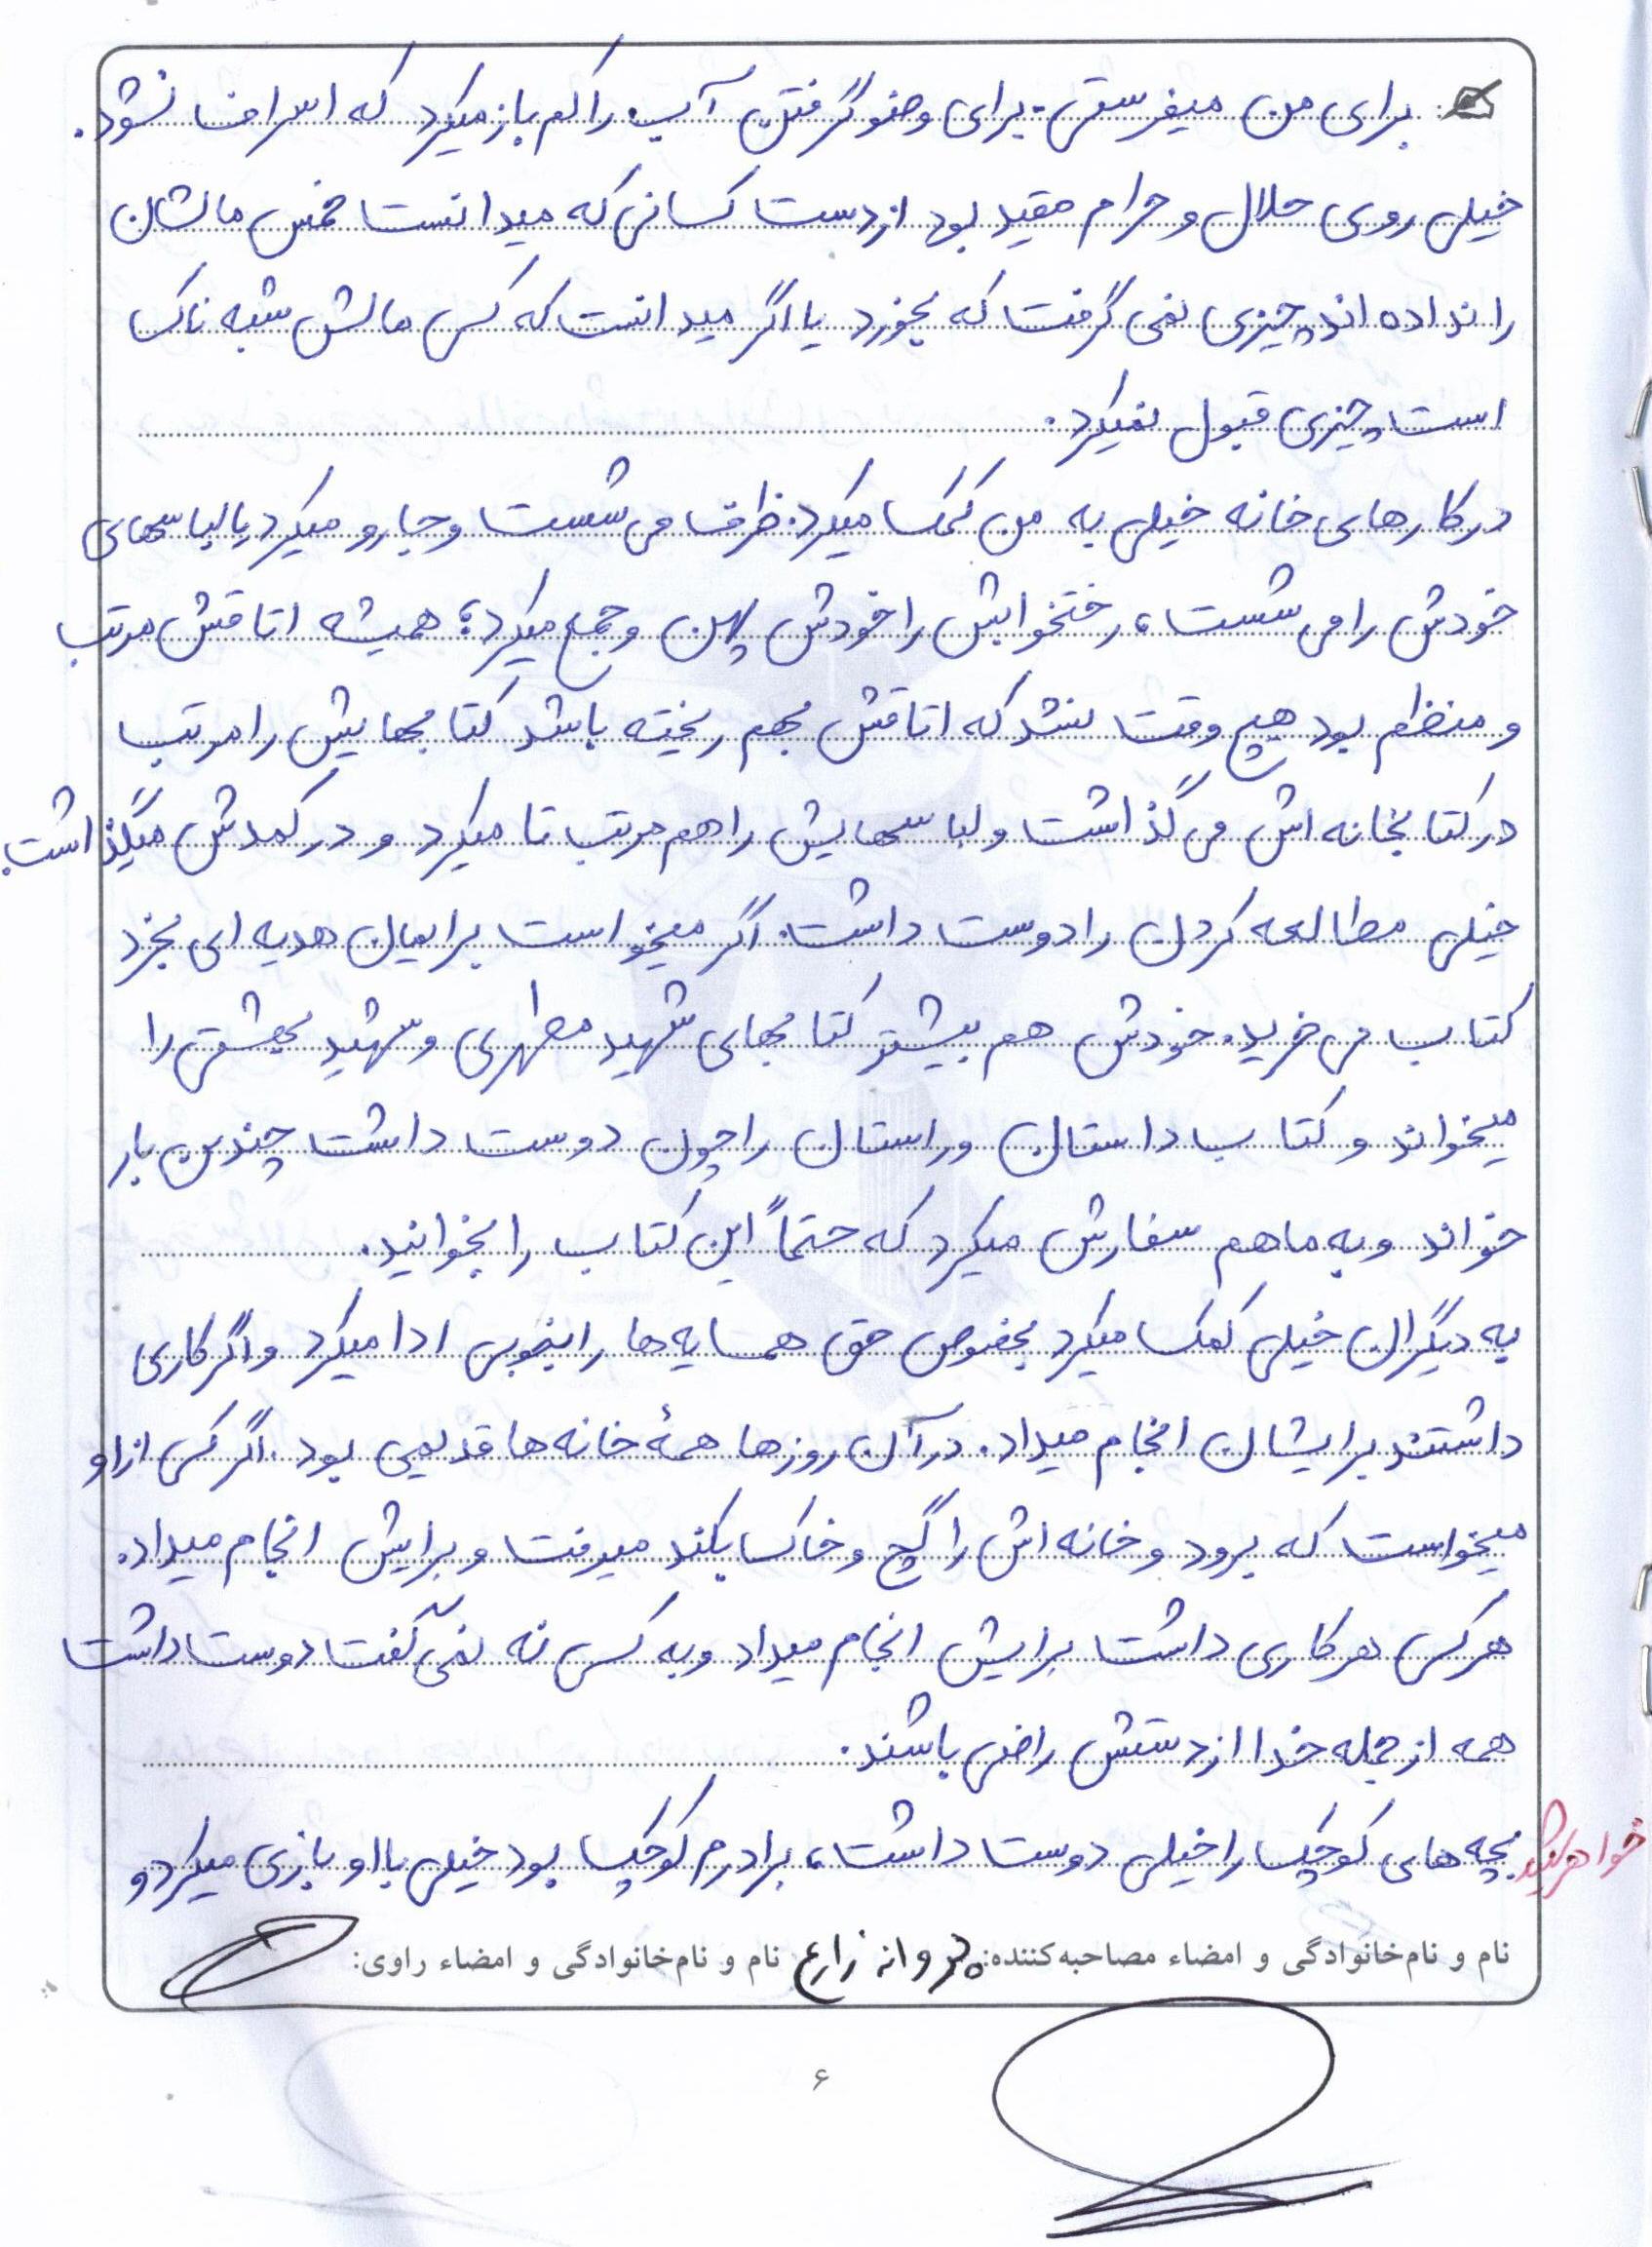 برای من میفرستی. برای وضو گرفتن آب را کم باز میکرد که اسراف نشود.
خیلی روی حلال و حرام مقید بود از دست کسانی که میدانست خمس مالشان
را نداده اند چیزی نمی گرفت که بخورد یا اگر میدانست که کسی مالش شبه ناک
است چیزی قبول نمیکرد.
در کارهای خانه خیلی به من کمک میکرد. ظرف می شست و جارو میکرد یا لباسهای
خودش را می شست، رختخوابش را خودش پهن و جمع میکرد؛ همیشه اتاقش مرتب
و منظم بود هیچ وقت نشد که اتاقش بهم ریخته باشد کتابهایش را مرتب
در کتابخانه اش می گذاشت و لباسهایش را هم مرتب تا میکرد و در کمدش میگذاشت.
خیلی مطالعه کردن را دوست داشت. اگر میخواست برایمان هدیه ای بخرد
کتاب می خرید. خودش هم بیشتر کتابهای شهید مطهری و شهید بهشتی را
میخواند و کتاب داستان راستان را چون دوست داشت چندین بار
خواند و به ما هم سفارش میکرد که حتماً این کتاب را بخوانید.
به دیگران خیلی کمک میکرد بخصوص حق همسایه ها را بخوبی ادا میکرد و اگر کاری
داشتند برایشان انجام میداد. در آن روزها همهٔ خانه ها قدیمی بود. اگر کسی از او
میخواست که برود و خانه اش را گچ و خاک بکند میرفت و برایش انجام میداد.
هر کس هر کاری داشت برایش انجام میداد و به کسی نه نمی گفت دوست داشت
همه از جمله خدا از دستش راضی باشند.
خواهر شهید بچه های کوچک را خیلی دوست داشت، برادرم کوچک بود خیلی با او بازی میکرد و
نام و نام‌خانوادگی و امضاء مصاحبه‌کننده: پروانه زارع نام و نام‌خانوادگی و امضاء راوی:
۶